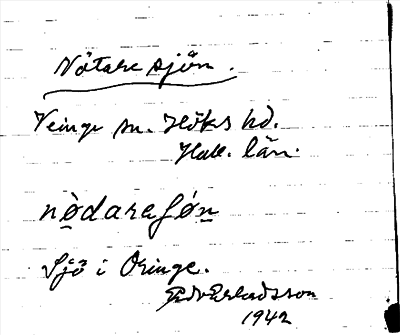 Nötaresjön.
Veinge sn. Höks hd.
Hall. län.
nò̱daraʃǿṉ
Sjö i Öringe.
Edv Erlandsson
1942